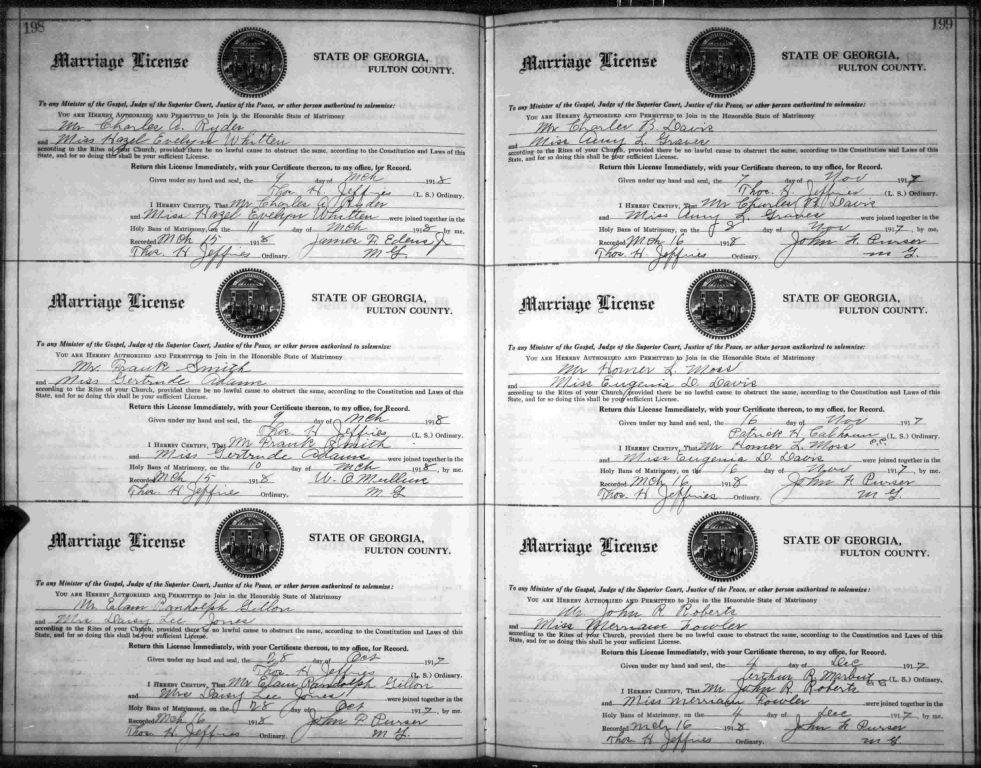 198
Marriage License
STATE OF GEORGIA,
FULTON COUNTY.
To any Minister of the Gospel, Judge of the Superior Court, Justice of the Peace, or other person authorized to solemnize:
YOU ARE HEREBY AUTHORIZED AND PERMITTED to Join in the Honorable State of Matrimony
Mr Charles A. Ryder
and Miss Hazel Evelyn Whitten
according to the Rites of your Church, provided there be no lawful cause to obstruct the same, according to the Constitution and Laws of this
State, and for so doing this shall be your sufficient License.
Return this License Immediately, with your Certificate thereon, to my office, for Record.
Given under my hand and seal, the 9 day of Mch 1918
Thos. H. Jeffries (L. S.) Ordinary.
I HEREBY CERTIFY, That Mr Charles A Ryder
and Miss Hazel Evelyn Whitten were joined together in the
Holy Bans of Matrimony, on the 11 day of Mch 1918, by me.
Recorded Mch 15 1918 James F.
Thos. H Jeffries Ordinary. M G
Marriage License
STATE OF GEORGIA,
FULTON COUNTY.
To any Minister of the Gospel, Judge of the Superior Court, Justice of the Peace, or other person authorized to solemnize:
YOU ARE HEREBY AUTHORIZED AND PERMITTED to Join in the Honorable State of Matrimony
Mr Frank Smith
and Miss Gertrude Adams
according to the Rites of your Church, provided there be no lawful cause to obstruct the same, according to the Constitution and Laws of this
State, and for so doing this shall be your sufficient License.
Return this License Immediately, with your Certificate thereon, to my office, for Record.
Given under my hand and seal, the 9 day of Mch 1918
Thos. H Jeffries (L. S.) Ordinary.
I HEREBY CERTIFY, That Mr Frank Smith
and Miss Gertrude Adams were joined together in the
Holy Bans of Matrimony, on the 10 day of Mch 1918, by me.
Recorded Mch 15 1918 W.
Thos. H Jeffries Ordinary. M G
Marriage License
STATE OF GEORGIA,
FULTON COUNTY.
To any Minister of the Gospel, Judge of the Superior Court, Justice of the Peace, or other person authorized to solemnize:
YOU ARE HEREBY AUTHORIZED AND PERMITTED to Join in the Honorable State of Matrimony
Mr Elam Randolph Gillon
and Mrs Daisy Lee Jones
according to the Rites of your Church, provided there be no lawful cause to obstruct the same, according to the Constitution and Laws of this
State, and for so doing this shall be your sufficient License.
Return this License Immediately, with your Certificate thereon, to my office, for Record.
Given under my hand and seal, the 28 day of Oct 1917
Thos. H Jeffries (L. S.) Ordinary.
I HEREBY CERTIFY, That Mr Elam Randolph Gillon
and Mrs Daisy Lee Jones were joined together in the
Holy Bans of Matrimony, on the 28 day of Oct 1917, by me.
Recorded Mch 16 1918 John F. Purser
Thos H Jeffries Ordinary. M G.
199
Marriage License
STATE OF GEORGIA,
FULTON COUNTY.
To any Minister of the Gospel, Judge of the Superior Court, Justice of the Peace, or other person authorized to solemnize:
YOU ARE HEREBY AUTHORIZED AND PERMITTED to Join in the Honorable State of Matrimony
Mr Charles B. Davis
and Miss Amy L Graves
according to the Rites of your Church, provided there be no lawful cause to obstruct the same, according to the Constitution and Laws of this
State, and for so doing this shall be your sufficient License.
Return this License Immediately, with your Certificate thereon, to my office, for Record.
Given under my hand and seal, the 7 day of Nov 1917
Thos. H. Jeffries (L. S.) Ordinary.
I HEREBY CERTIFY, That Mr Charles B Davis
and Miss Amy L Graves were joined together in the
Holy Bans of Matrimony, on the 8 day of Nov 1917, by me.
Recorded Mch 16 1918 John F. Purser
Thos. H Jeffries Ordinary. M G.
Marriage License
STATE OF GEORGIA,
FULTON COUNTY.
To any Minister of the Gospel, Judge of the Superior Court, Justice of the Peace, or other person authorized to solemnize:
YOU ARE HEREBY AUTHORIZED AND PERMITTED to Join in the Honorable State of Matrimony
Mr Homer L. Moss
and Miss Eugenia D. Davis
according to the Rites of your Church, provided there be no lawful cause to obstruct the same, according to the Constitution and Laws of this
State, and for so doing this shall be your sufficient License.
Return this License Immediately, with your Certificate thereon, to my office, for Record.
Given under my hand and seal, the 16 day of Nov 1917
Patrick H. Calhoun (L. S.) Ordinary.
I HEREBY CERTIFY, That Mr Homer L Moss
and Miss Eugenia D. Davis were joined together in the
Holy Bans of Matrimony, on the 16 day of Nov 1917, by me.
Recorded Mch 16 1918 John F. Purser
Thos H Jeffries Ordinary. M G
Marriage License
STATE OF GEORGIA,
FULTON COUNTY.
To any Minister of the Gospel, Judge of the Superior Court, Justice of the Peace, or other person authorized to solemnize:
YOU ARE HEREBY AUTHORIZED AND PERMITTED to Join in the Honorable State of Matrimony
Mr John R Roberts
and Miss Merriam Fowler
according to the Rites of your Church, provided there be no lawful cause to obstruct the same, according to the Constitution and Laws of this
State, and for so doing this shall be your sufficient License.
Return this License Immediately, with your Certificate thereon, to my office, for Record.
Given under my hand and seal, the 4 day of Dec 1917
(L. S.) Ordinary.
I HEREBY CERTIFY, That Mr John R Roberts
and Miss Merriam Fowler were joined together in the
Holy Bans of Matrimony, on the 4 day of Dec 1917, by me.
Recorded Mch 16 1918 John F Purser
Thos H Jeffries Ordinary. M G.